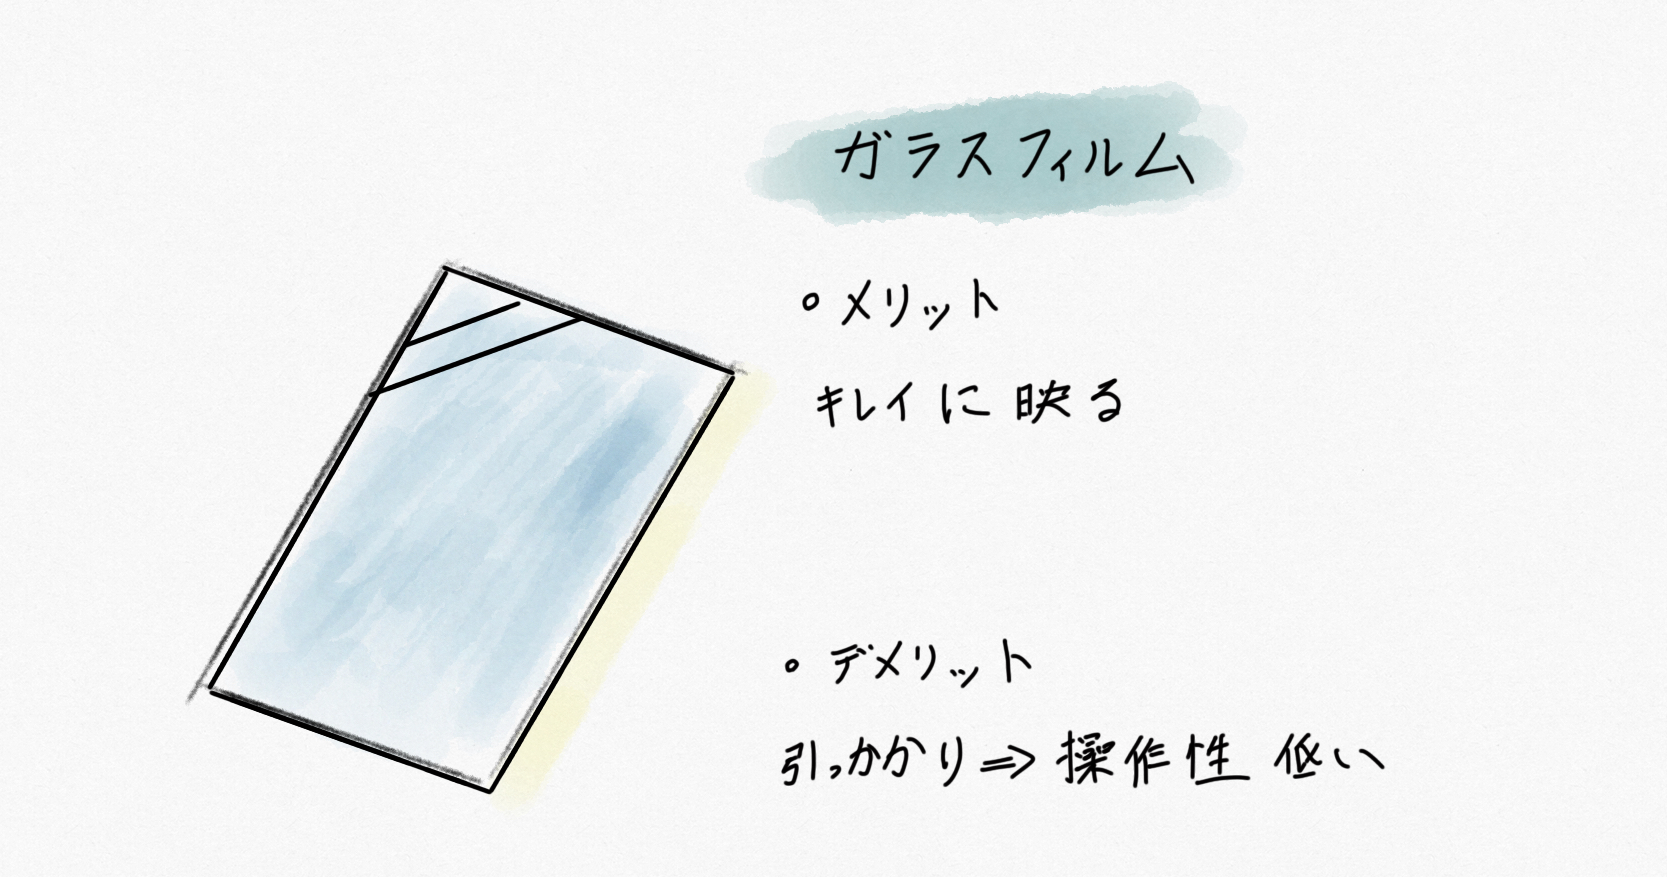 ガラスフィルム
◦ メリット
キレイに映る
◦ デメリット
引っかかり⇒操作性 低い